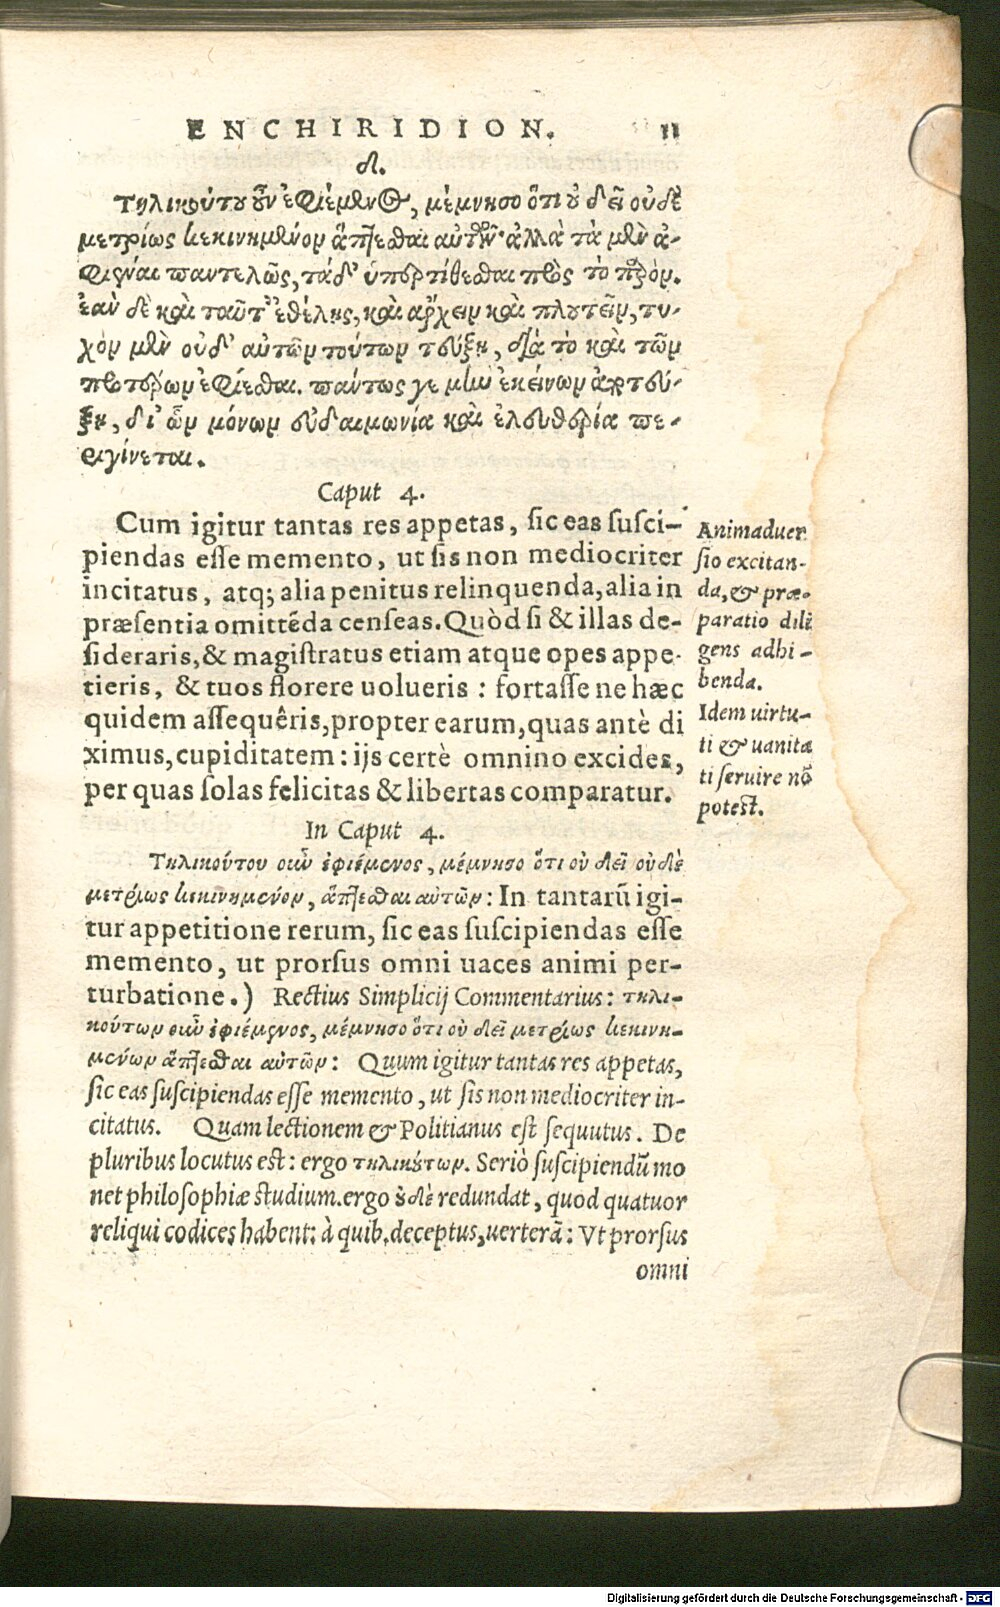 ENCHIRIDION. 11
δ.
Τηλικούτου οὖν ἐφιέμενος, μέμνησο ὅτι οὐ δεῖ οὐδὲ
μετρίως κεκινημένον ἅπτεσθαι αὐτῶν· ἀλλὰ τὰ μὲν ἀ-
φιέναι παντελῶς, τὰ δ' ὑπερτίθεσθαι πρὸς τὸ παρόν.
ἐὰν δὲ καὶ ταῦτ' ἐθέλῃς, καὶ ἄρχειν καὶ πλουτεῖν, τυ-
χὸν μὲν οὐδ' αὐτῶν τούτων τεύξῃ, διὰ τὸ καὶ τῶν
προτέρων ἐφίεσθαι. πάντως γε μὴν ἐκείνων ἀποτεύ-
ξῃ, δι' ὧν μόνων εὐδαιμονία καὶ ἐλευθερία πε-
ριγίνεται.
Caput 4.
Cum igitur tantas res appetas, sic eas susci-
piendas esse memento, ut sis non mediocriter
incitatus, atq; alia penitus relinquenda, alia in
præsentia omittẽda censeas. Quòd si & illas de-
sideraris, & magistratus etiam atque opes appe-
tieris, & tuos florere uolueris : fortasse ne hæc
quidem assequêris, propter earum, quas antè di
ximus, cupiditatem : ijs certè omnino excides,
per quas solas felicitas & libertas comparatur.
Animaduer
sio excitan-
da, & præ-
paratio dili
gens adhi-
benda.
Idem uirtu-
ti & uanita
ti seruire nõ
potest.
In Caput 4.
Τηλικούτου οὖν ἐφιέμενος, μέμνησο ὅτι οὐ δεῖ οὐδὲ
μετρίως κεκινημένον, ἅπτεσθαι αὐτῶν: In tantarũ igi-
tur appetitione rerum, sic eas suscipiendas esse
memento, ut prorsus omni uaces animi per-
turbatione.) Rectius Simplicij Commentarius: τηλι-
κούτων οὖν ἐφιέμενος, μέμνησο ὅτι οὐ δεῖ μετρίως κεκινη-
μένων ἅπτεσθαι αὐτῶν: Quum igitur tantas res appetas,
sic eas suscipiendas esse memento, ut sis non mediocriter in-
citatus. Quam lectionem & Politianus est sequutus. De
pluribus locutus est: ergo τηλικούτων. Seriò suscipiendũ mo
net philosophiæ studium. ergo οὐδὲ redundat, quod quatuor
reliqui codices habent: à quib. deceptus, uerterã: Vt prorsus
omni
Digitalisierung gefördert durch die Deutsche Forschungsgemeinschaft - DFG